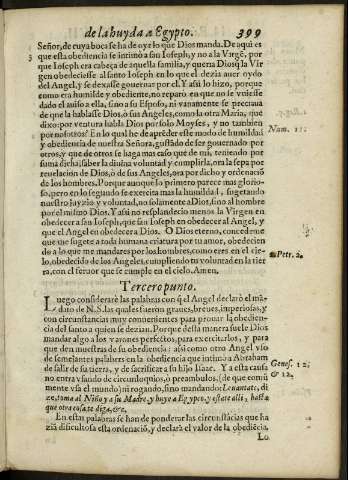 de la huyda a Egypto. 399
Señor, de cuya boca se ha de oyr lo que Dios manda. De aqui es
que esta obediencia se intimò a san Ioseph, y no a la Virgẽ, por
que Ioseph era cabeça de aquella familia, y queria Dios q̃ la Vir
gen obedeciesse al santo Ioseph en lo que el dezia auer oydo
del Angel, y se dexasse gouernar por el. Y assi lo hizo, porque
como era humilde y obediente, no reparò en que no se vuiesse
dado el auiso a ella, sino a su Esposo, ni vanamente se preciaua
de que la hablasse Dios, ò sus Angeles, como la otra Maria, que
dixo: por ventura habla Dios por solo Moyses, y no tambien
por nosotros? En lo qual he de aprẽder este modo de humildad
y obediencia de nuestra Señora, gustãdo de ser gouernado por
otros, y que de otros se haga mas caso que de mi, teniendo por
suma dicha, saber la diuina voluntad y cumplirla, ora la sepa por
reuelacion de Dios, ò de sus Angeles, ora por dicho y ordenaciõ
de los hombres. Porque aunque lo primero parece mas glorio-
so, pero en lo segundo se exercita mas la humildad, sugetando
nuestro juyzio y voluntad, no solamente a Dios, sino al hombre
por el mismo Dios. Y assi no resplandecio menos la Virgen en
obedecer a san Ioseph, que san Ioseph en obedecer al Angel, y
que el Angel en obedecer a Dios. O Dios eterno, concedeme
que me sugete a toda humana criatura por tu amor, obedecien
do a lo que me mandares por los hombres, como eres en el cie-
lo, obedecido de los Angeles, cumpliendo tu voluntad en la tier
ra, con el feruor que se cumple en el cielo. Amen.
Num. 12.
1. Petr. 2.
Tercero punto.
Luego considerarè las palabras con q̃ el Angel declarò el mã-
dato de N. S. las quales fueron graues, breues, imperiosas, y
con circunstancias muy conuenientes para prouar la obedien-
cia del santo a quien se dezian. Porque desta manera suele Dios
mandar algo a los varones perfectos, para exercitarlos, y para
que den muestras de su obediencia: assi como otro Angel vsò
de semejantes palabras en la obediencia que intimò a Abraham
de salir de su tierra, y de sacrificar a su hijo Isaac. Y a esta causa
no entra vsando de circunloquios, ò preambulos, (de que comũ
mente vsa el mundo) ni rogando, sino mandando: Leuantate, di
ze, toma al Niño y a su Madre, y huye a Egypto, y estate alli, hasta
que otra cosa te diga, &c.
Genes. 12.
& 22.
En estas palabras se han de ponderar las circunstãcias que ha
ziã dificultosa esta ordenaciõ, y declarã el valor de la obediẽcia.
Lo